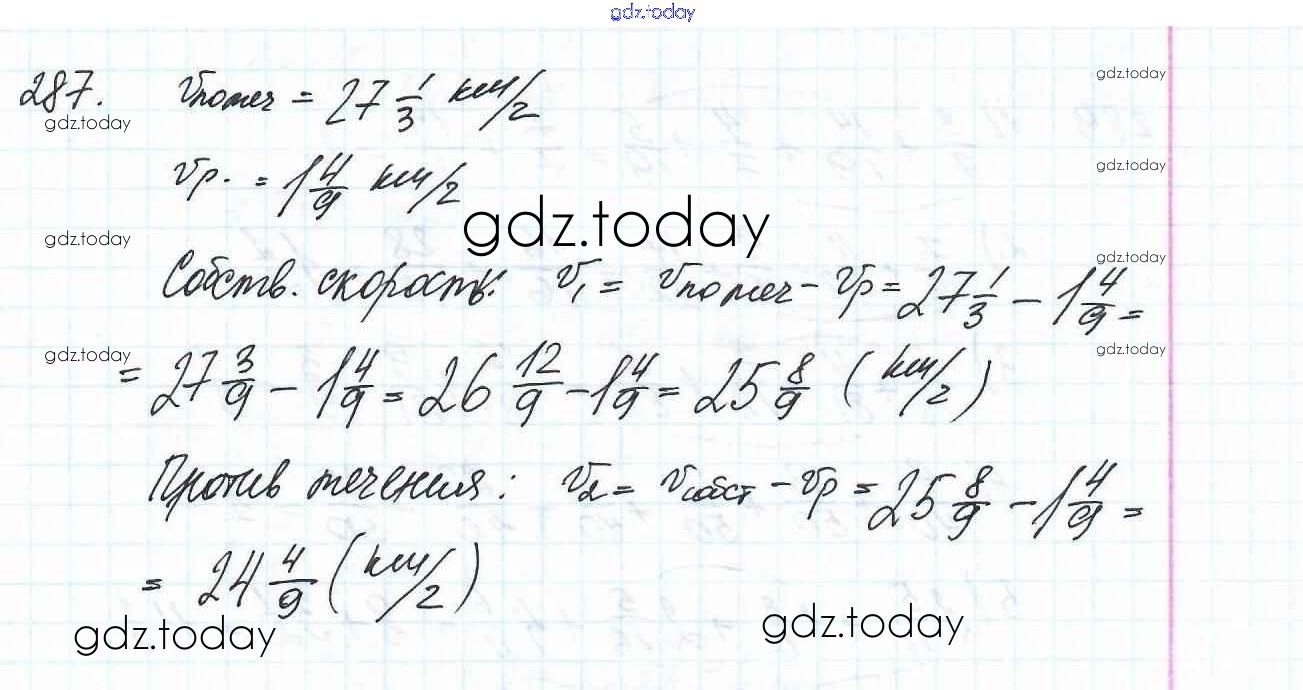 gdz.today
287. Vпотеч = 27 1/3 км/г
gdz.today
gdz.today
Vр. = 1 4/9 км/г
gdz.today
gdz.today
gdz.today
gdz.today
Собств. скорость: V₁ = Vпотеч - Vр = 27 1/3 - 1 4/9 =
gdz.today
gdz.today
= 27 3/9 - 1 4/9 = 26 12/9 - 1 4/9 = 25 8/9 (км/г)
Против течения: V₂ = Vсобст - Vр = 25 8/9 - 1 4/9 =
= 24 4/9 (км/г)
gdz.today
gdz.today